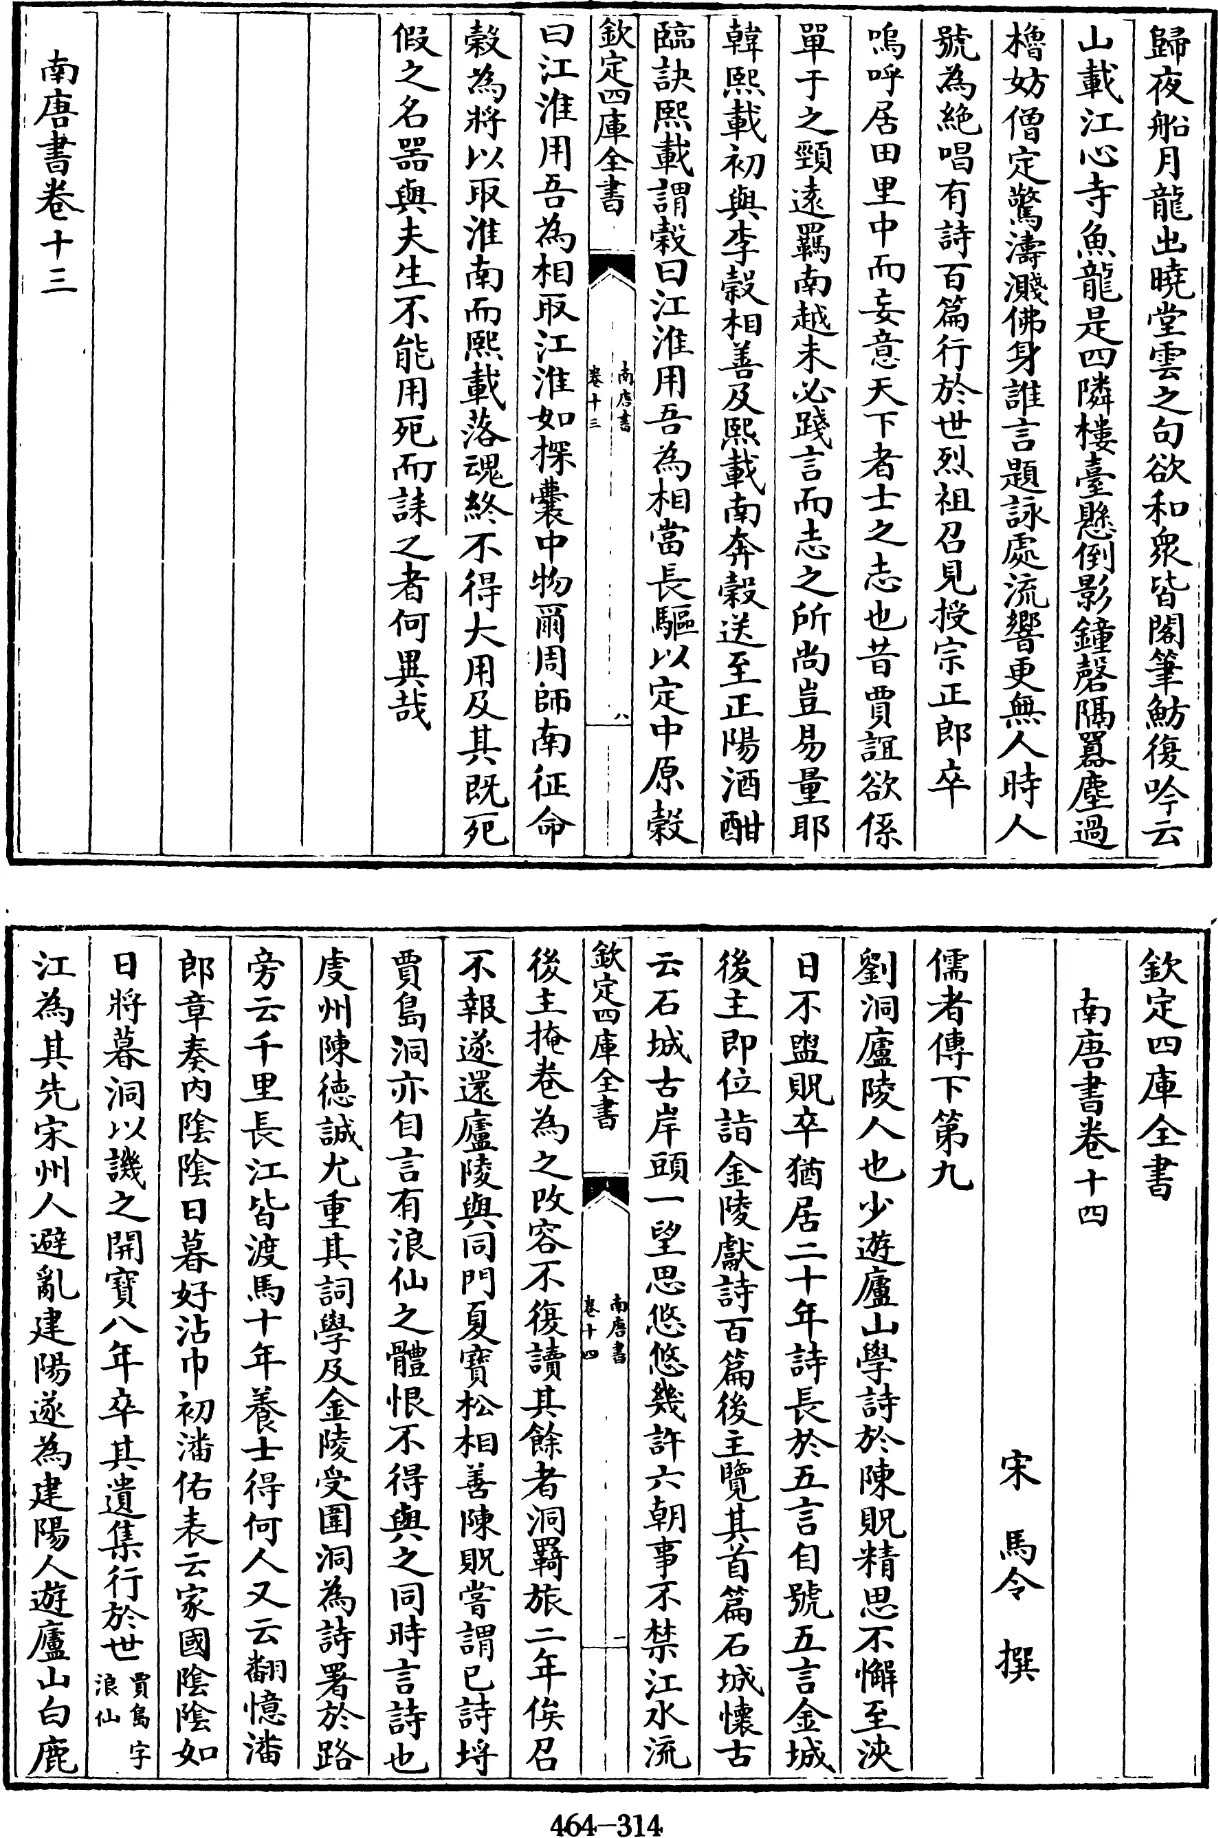 歸夜船月龍出曉堂雲之句欲和衆皆閣筆魴復吟云
山載江心寺魚龍是四隣樓臺懸倒影鐘磬隔囂塵過
櫓妨僧定驚濤濺佛身誰言題詠處流響更無人時人
號為絶唱有詩百篇行於世烈祖召見授宗正郎卒
嗚呼居田里中而妄意天下者士之志也昔賈誼欲係
單于之頸遠羈南越未必踐言而志之所尚豈易量耶
韓熙載初與李榖相善及熙載南奔榖送至正陽酒酣
臨訣熙載謂榖曰江淮用吾為相當長驅以定中原榖
欽定四庫全書
南唐書
卷十三
八
曰江淮用吾為相取江淮如探囊中物爾周師南征命
榖為將以取淮南而熙載落魂終不得大用及其既死
假之名器與夫生不能用死而誄之者何異哉
南唐書卷十三
欽定四庫全書
南唐書卷十四
宋 馬令 撰
儒者傳下第九
劉洞廬陵人也少遊廬山學詩於陳貺精思不懈至浹
日不盥貺卒猶居二十年詩長於五言自號五言金城
後主即位詣金陵獻詩百篇後主覽其首篇石城懷古
云石城古岸頭一望思悠悠幾許六朝事不禁江水流
欽定四庫全書
南唐書
卷十四
一
後主掩卷為之改容不復讀其餘者洞羇旅二年俟召
不報遂還廬陵與同門夏寶松相善陳貺嘗謂已詩埒
賈島洞亦自言有浪仙之體恨不得與之同時言詩也
䖍州陳徳誠尤重其詞學及金陵受圍洞為詩署於路
旁云千里長江皆渡馬十年養士得何人又云翻憶潘
郎章奏内陰陰日暮好沾巾初潘佑表云家國陰陰如
日將暮洞以譏之開寶八年卒其遺集行於世賈島字浪仙
江為其先宋州人避亂建陽遂為建陽人遊廬山白鹿
464-314